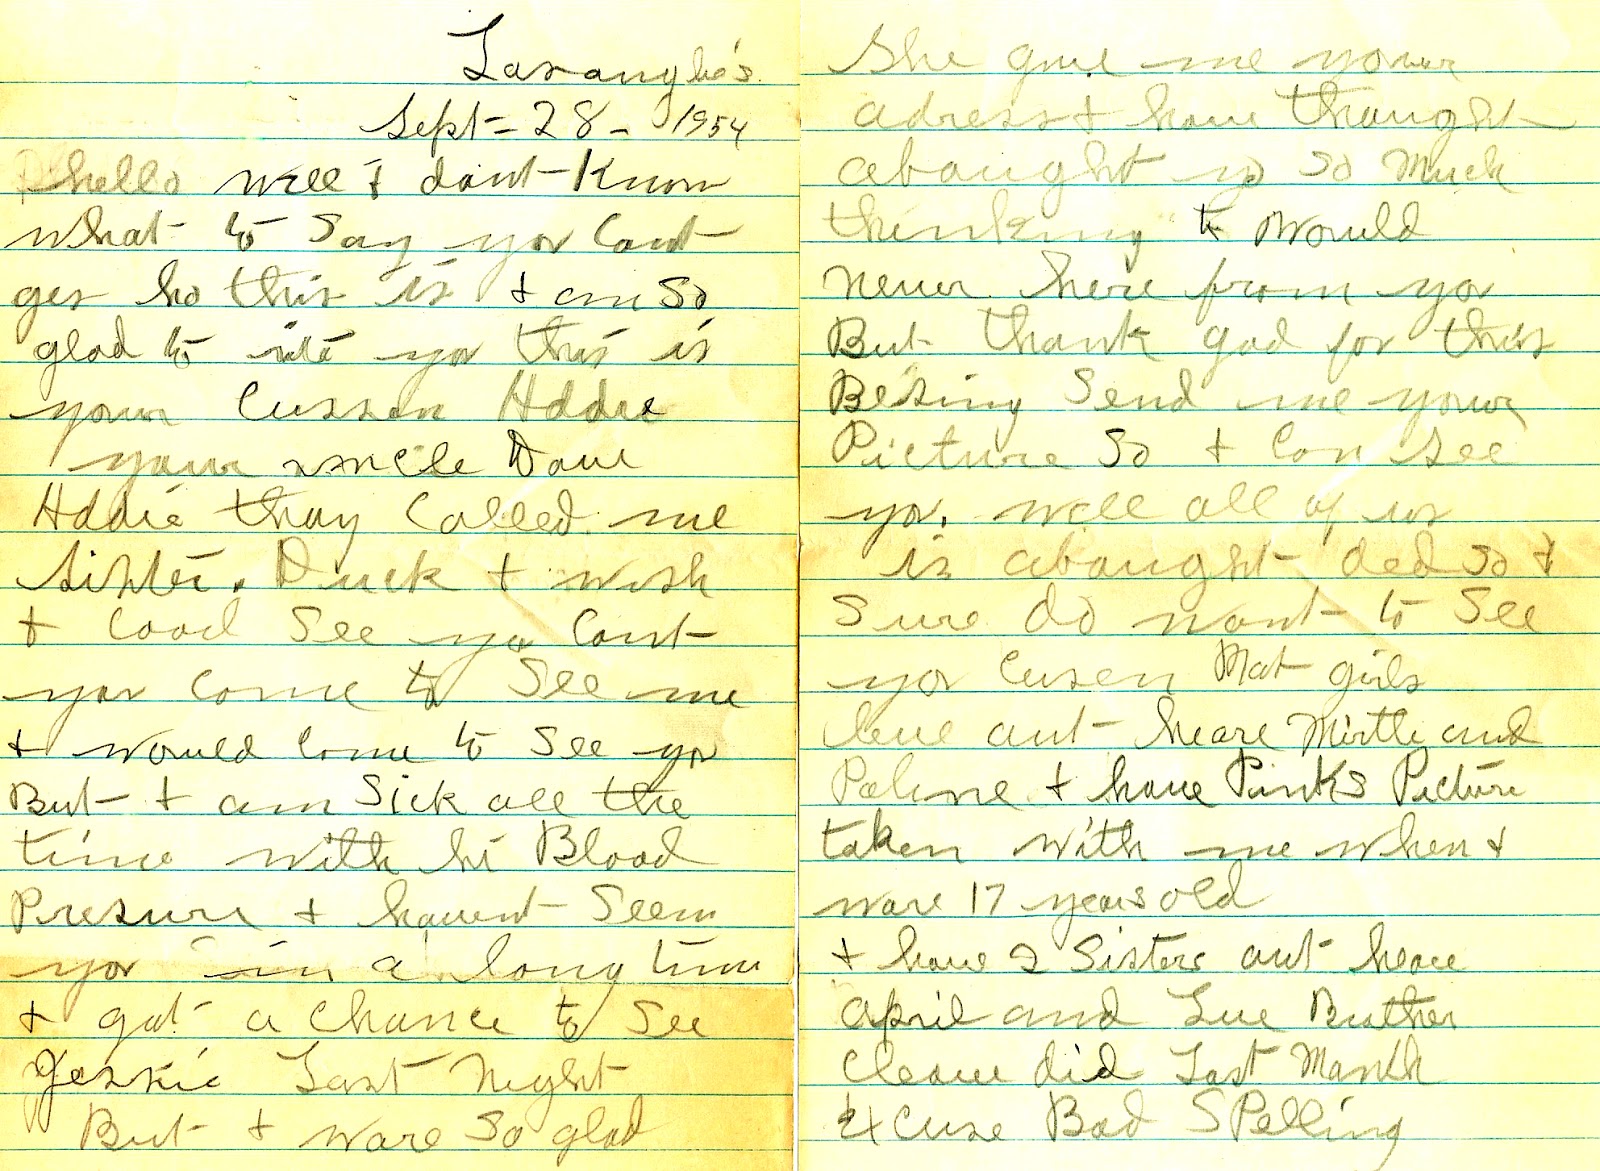 Losangles
Sept - 28 - 1954
hello well I dont Know
what to Say yor Cant
ges ho this is I am So
glad to rite yor this is
your Cussen Addie
your uncle Dave
Addie thay Called me
Sister. Duck I wish
I Cood See yor Cant
yor Come to See me
I would Come to See yor
But I am Sick all the
time with hi Blood
Presure I havent Seen
yor in a long time
I got a Chance to See
Jessie Last Night
But I ware So glad
She give me your
adress I have thought
abought yo So Much
thinking I Would
never here from yor
But thank god for this
Blesing Send me your
Picture So I Can See
yor. well all of us
is abought ded So I
Sure do want to See
yor Cusen Mat girls
live out heare Mirtle and
Paline I have Pinks Picture
taken with me when I
ware 17 years old
I have 2 Sisters out heare
April and Lue Brother
Cleave did Last Month
Excuse Bad SPelling